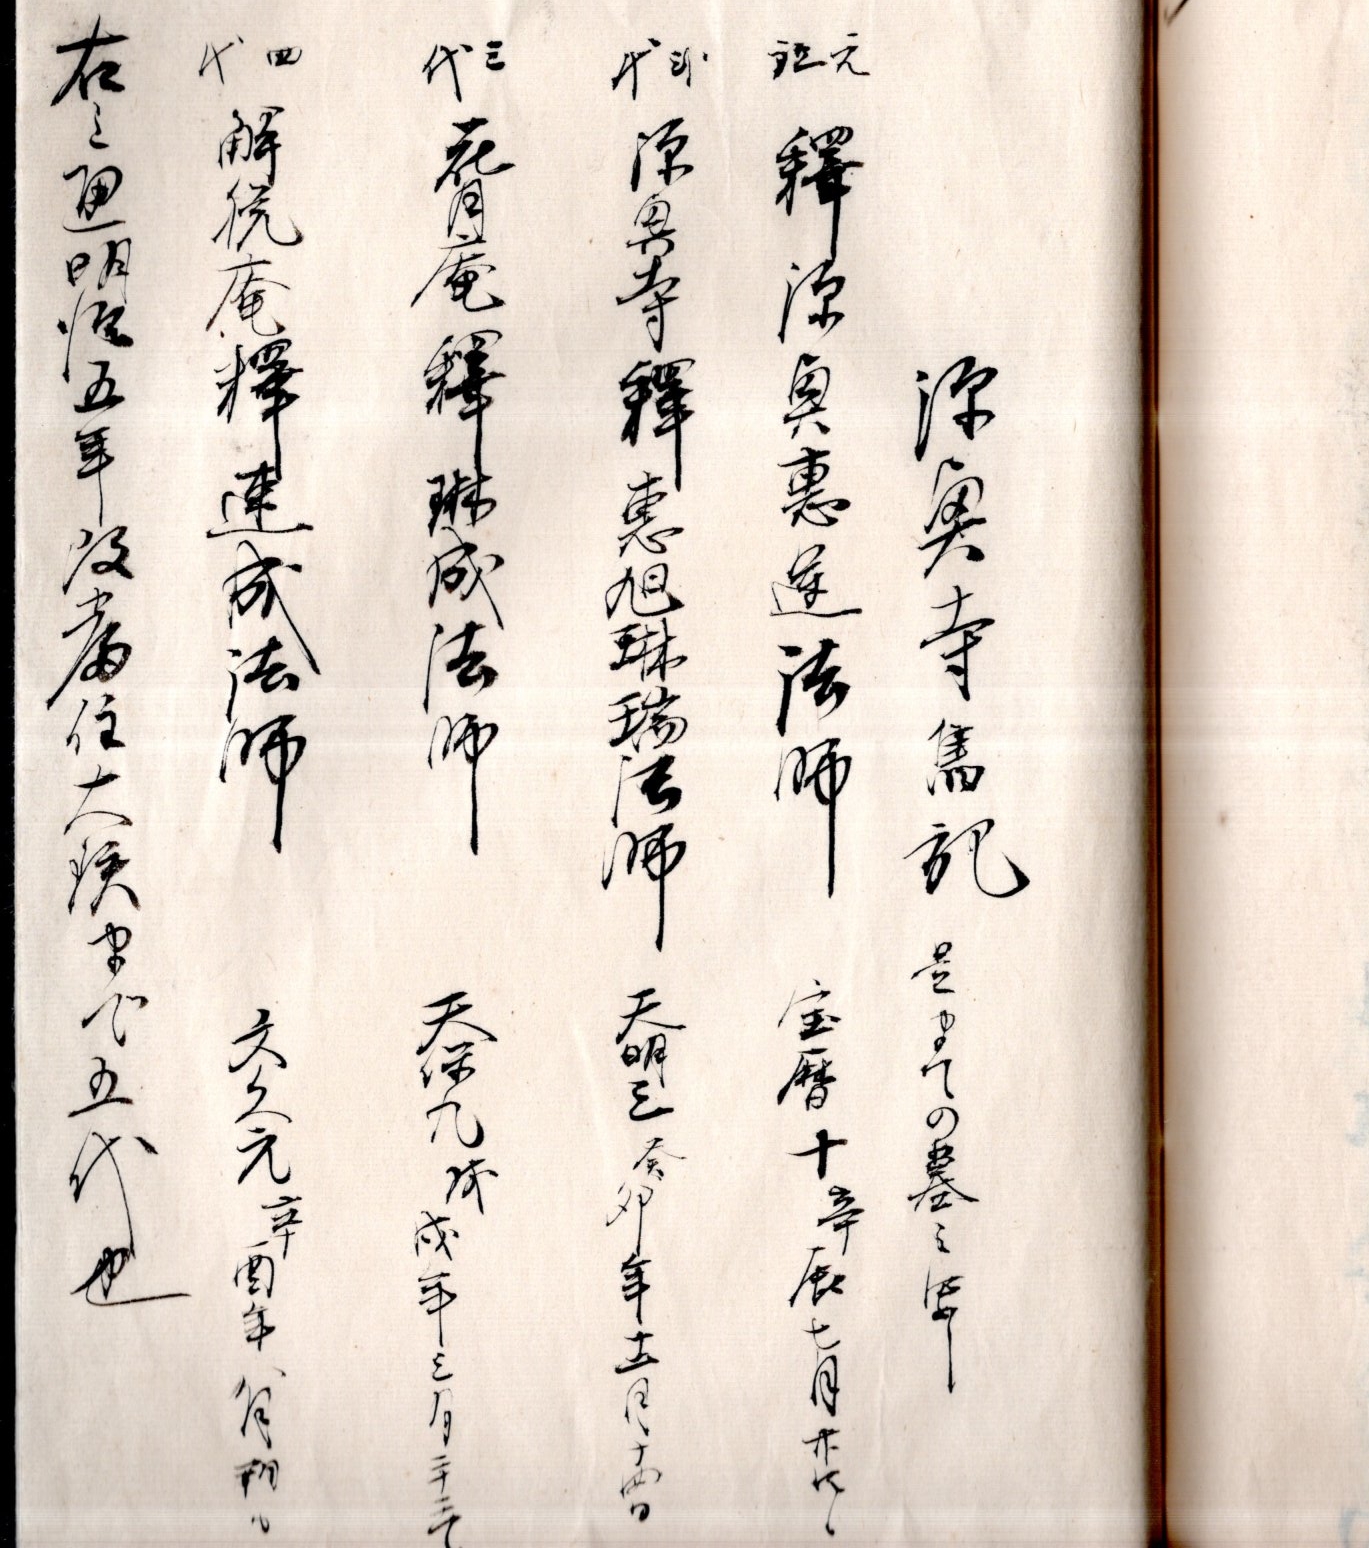 源奥寺旧記 是までの墓之譯
元祖 釋源奥惠蓮法師 宝暦十辛辰七月廿六日
弐代 源奥寺釋惠旭琳瑞法師 天明三癸卯年十一月十四日
三代 花月庵釋琳成法師 天保九戊戌年三月二十三日
四代 解脱庵釋連成法師 文久元辛酉年八月朔日
右之通明治五年改當住大瑛まで五代也